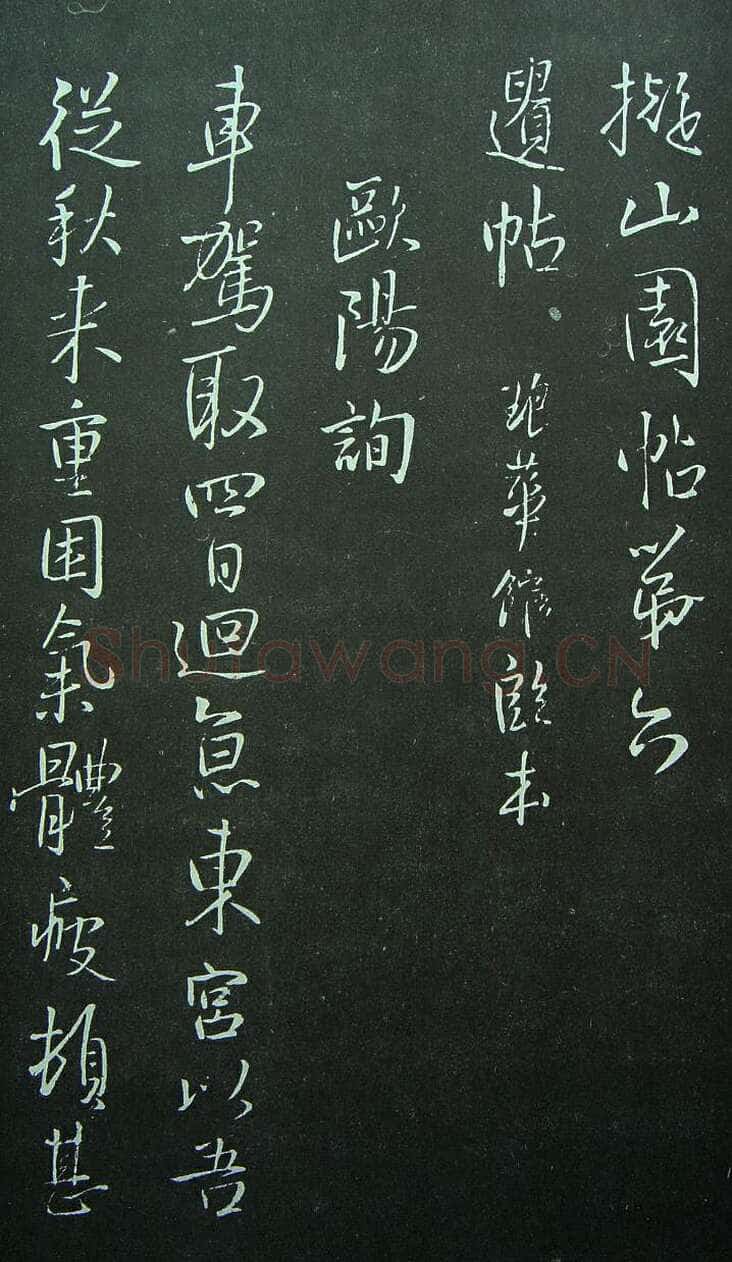 擬山園帖第六
遺帖 琅華館臨本
歐陽詢
車駕取四日迴息東宮以吾
從秋来重困氣體疲頓甚
Shufawang.CN